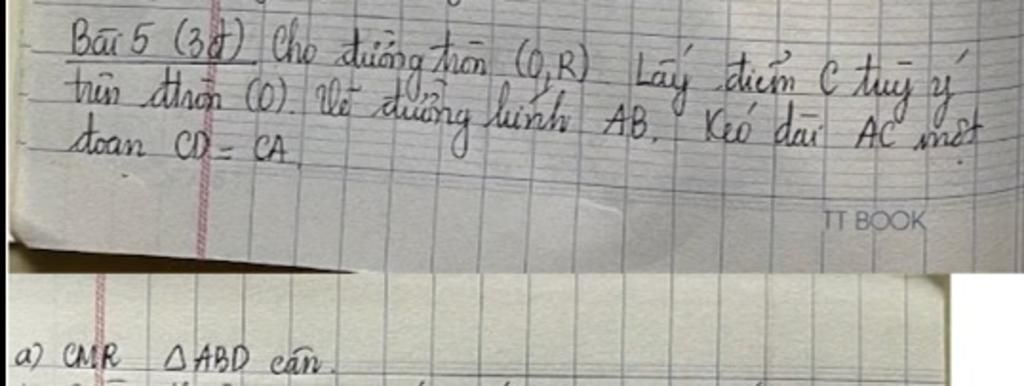 Bài 5 (3đ) Cho đường tròn (O,R) Lấy điểm C tuỳ ý
trên đtròn (O). Vẽ đường kính AB. Kéo dài AC một
đoạn CD = CA
TT BOOK
a) CMR △ABD cân.